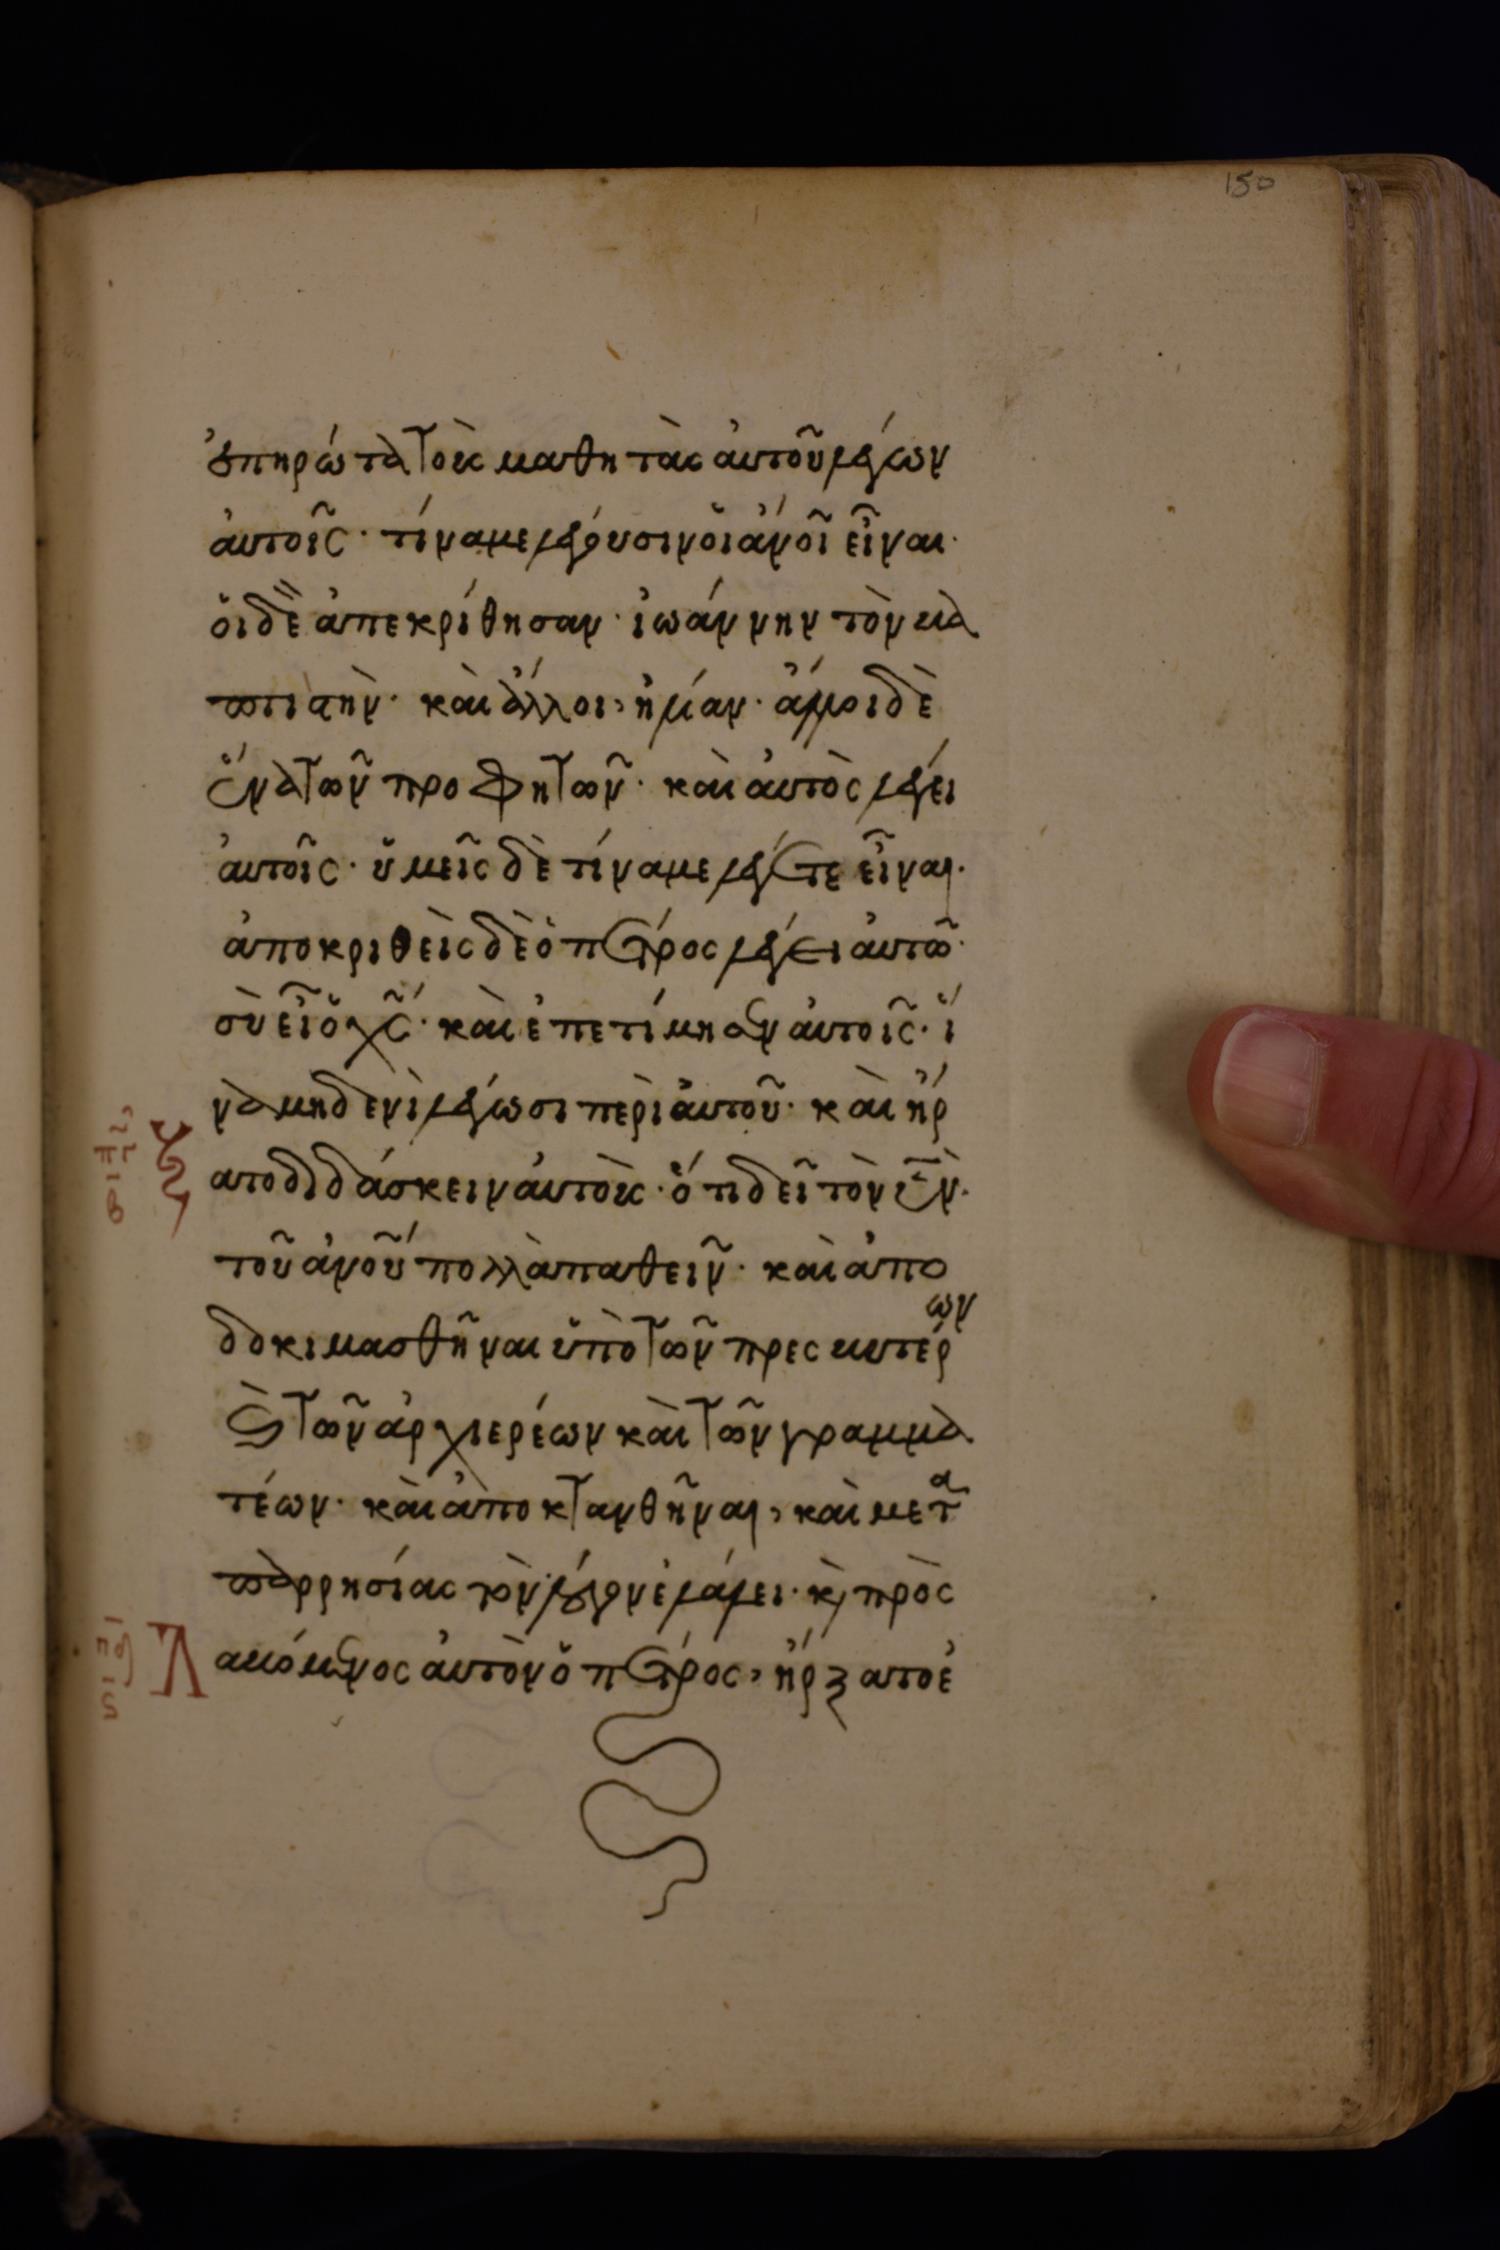 150
ἐπηρώτα τοὺς μαθητὰς αὐτοῦ λέγων
αὐτοῖς· τίνα με λέγουσιν οἱ ἄνοι εἶναι·
οἱ δὲ ἀπεκρίθησαν· ἰωάννην τὸν βα
πτιστὴν· καὶ ἄλλοι, ἠλίαν· ἄλλοι δὲ
ἕνα τῶν προφητῶν· καὶ αὐτὸς λέγει
αὐτοῖς· ὑμεῖς δὲ τίνα με λέγετε εἶναι·
ἀποκριθεὶς δὲ ὁ πέτρος λέγει αὐτῶ·
σὺ εἶ ὁ χς· καὶ ἐπετίμησεν αὐτοῖς· ἵ
να μηδενὶ λέγωσι περὶ αὐτοῦ· καὶ ἤρ
ξατο διδάσκειν αὐτοὺς· ὅτι δεῖ τὸν υν·
τοῦ ἀνου πολλὰ παθεῖν· καὶ ἀπο
δοκιμασθῆναι ὑπὸ τῶν πρεσβυτέρων
καὶ τῶν ἀρχιερέων καὶ τῶν γραμμα
τέων· καὶ ἀποκτανθῆναι, καὶ μετὰ
παρρησίας τὸν λόγον ἐλάλει· καὶ πρὸς
λαβόμενος αὐτὸν ὁ πέτρος, ἤρξατο ἐ